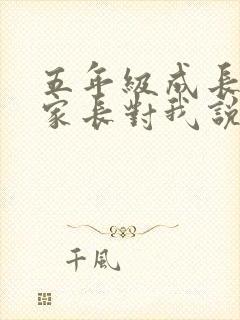 五年級成長
家長對我說
千風